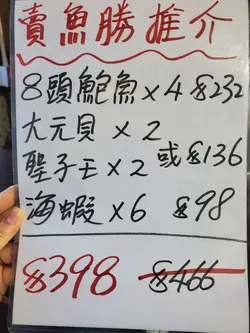 賣魚勝推介
8頭鮑魚×4 $232
大元貝×2
聖子王×2 或$136
海蝦×6 $98
$398 $466